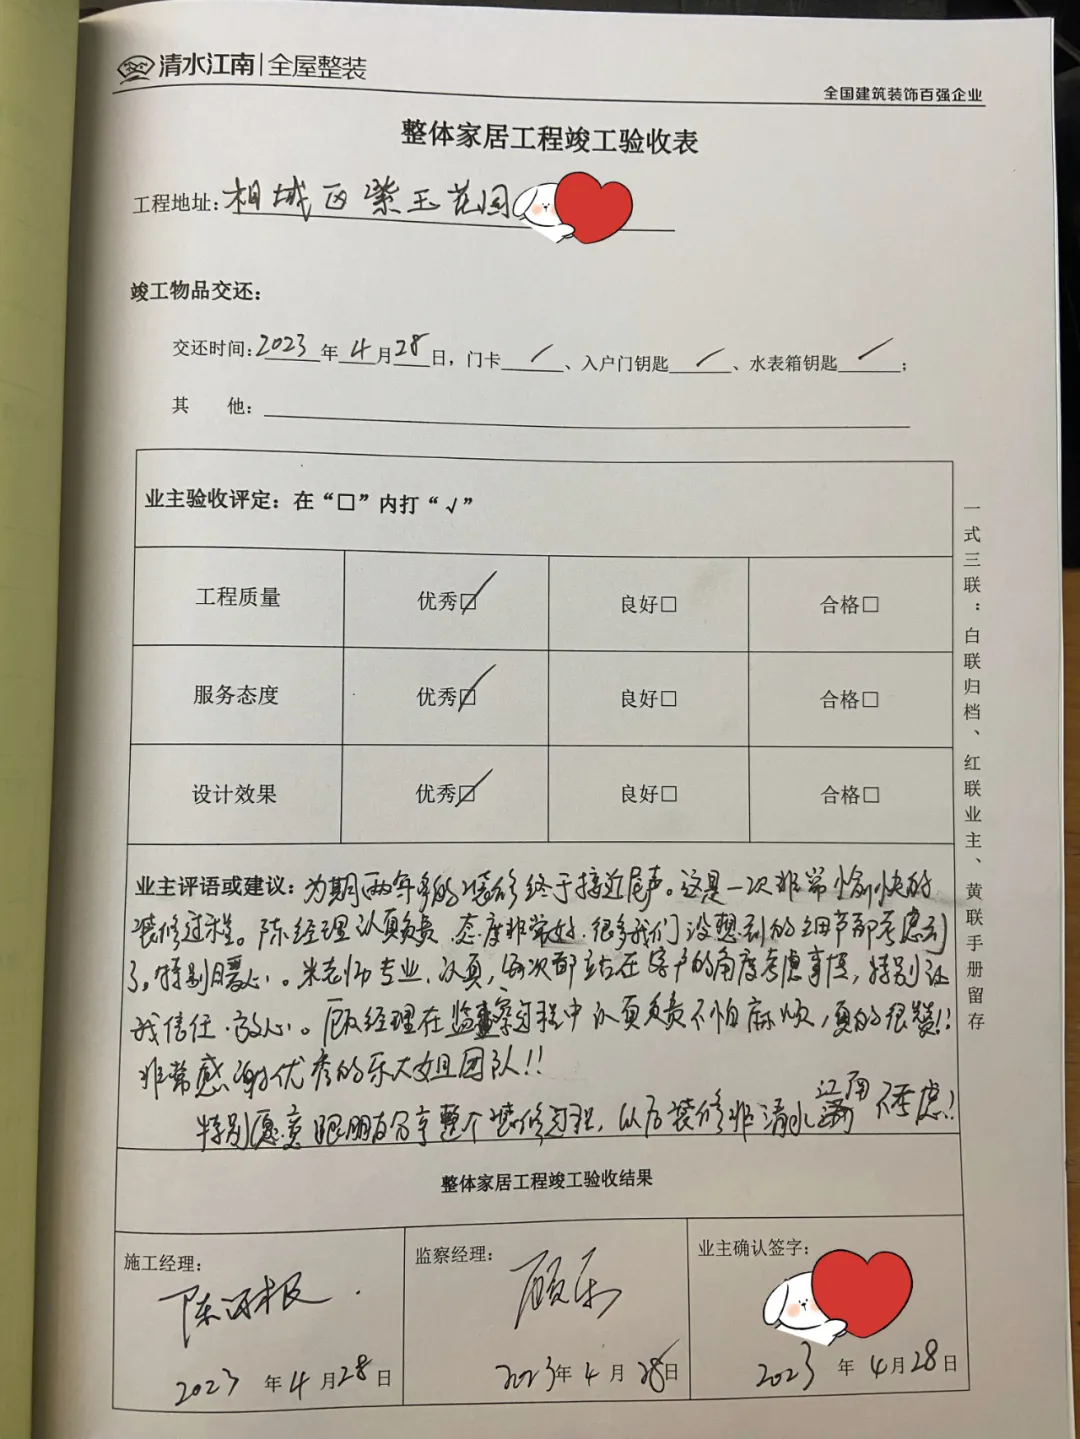 清水江南|全屋整装
全国建筑装饰百强企业
整体家居工程竣工验收表
工程地址:相城区紫玉花园
竣工物品交还:
交还时间:2023年4月28日,门卡/、入户门钥匙/、水表箱钥匙/;
其 他:
业主验收评定:在“□”内打“√”
工程质量 优秀☑ 良好□ 合格□
服务态度 优秀☑ 良好□ 合格□
设计效果 优秀☑ 良好□ 合格□
一式三联:白联归档、红联业主、黄联手册留存
业主评语或建议:为期两年多的装修终于接近尾声。这是一次非常愉快的
装修过程。陈经理认真负责,态度非常好,很多我们没想到的细节都考虑到
了,特别暖心。朱老师专业,认真,每次都站在客户的角度考虑事情,特别让
我信任、放心。顾经理在监察过程中认真负责不怕麻烦,真的很赞!!
非常感谢优秀的乐大姐团队!!
特别愿意跟朋友分享整个装修过程,以后装修非清水江南不考虑!
整体家居工程竣工验收结果
施工经理:
监察经理:
业主确认签字:
顾乐
2023年4月28日
2023年4月28日
2023年4月28日